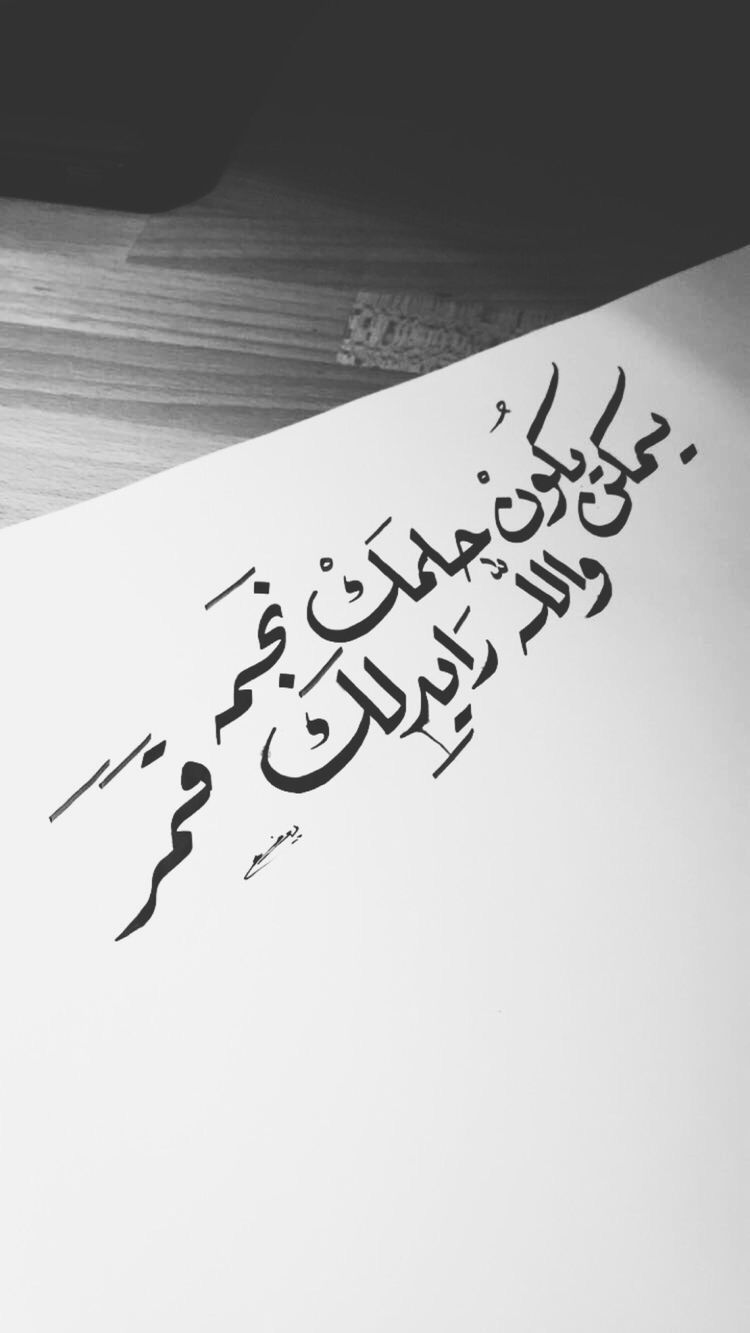 يمكن يكُونْ حلمكْ نجمه
والله رَايدِ لكَ قمَر